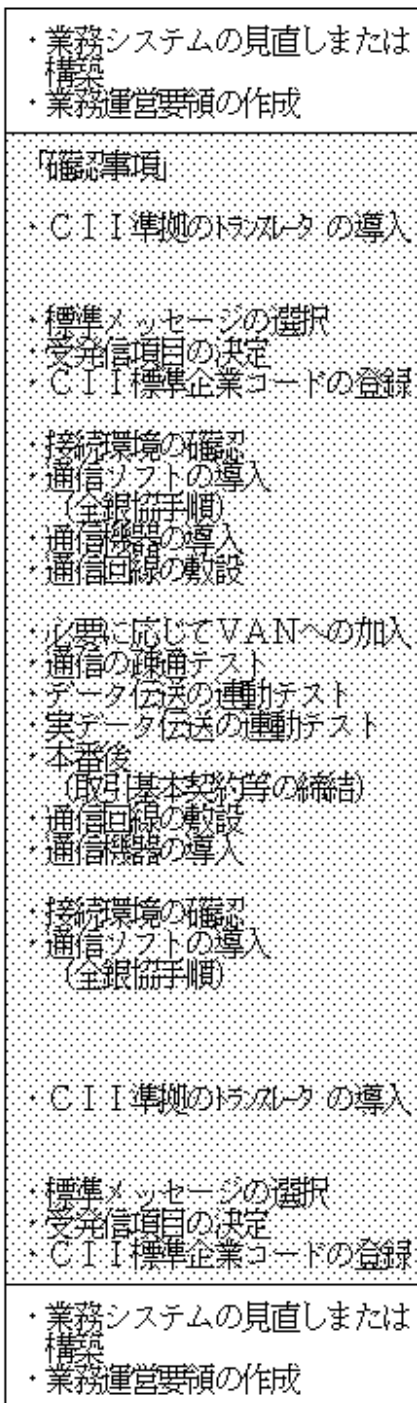 ・業務システムの見直しまたは
構築
・業務運営要領の作成
「確認事項」
・ＣＩＩ準拠のﾄﾗﾝｽﾚｰﾀ の導入
・標準メッセージの選択
・受発信項目の決定
・ＣＩＩ標準企業コードの登録
・接続環境の確認
・通信ソフトの導入
（全銀協手順）
・通信機器の導入
・通信回線の敷設
・必要に応じてＶＡＮへの加入
・通信の疎通テスト
・データ伝送の連動テスト
・実データ伝送の連動テスト
・本番後
（取引基本契約等の締結）
・通信回線の敷設
・通信機器の導入
・接続環境の確認
・通信ソフトの導入
（全銀協手順）
・ＣＩＩ準拠のﾄﾗﾝｽﾚｰﾀ の導入
・標準メッセージの選択
・受発信項目の決定
・ＣＩＩ標準企業コードの登録
・業務システムの見直しまたは
構築
・業務運営要領の作成